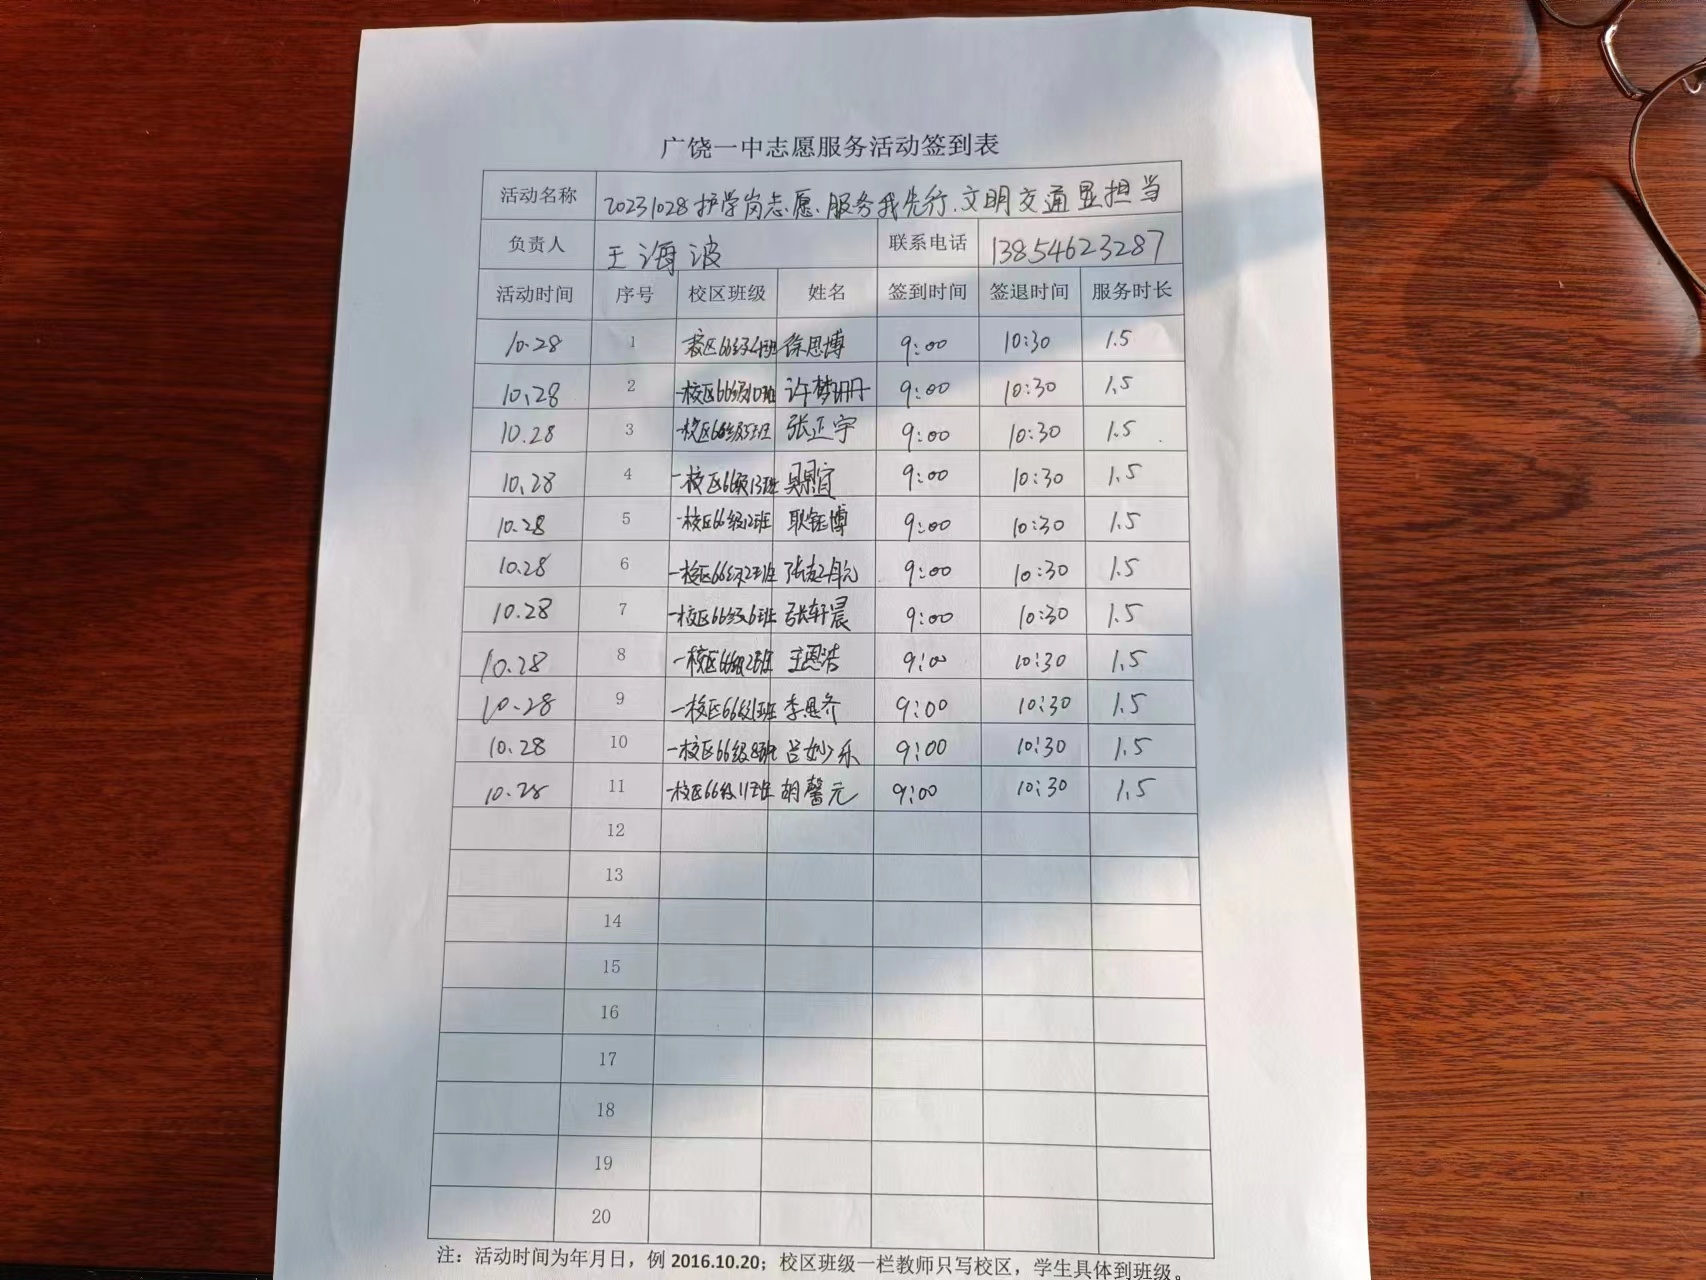 广饶一中志愿服务活动签到表
活动名称 20231028护学岗志愿、服务我先行、文明交通显担当
负责人 王海波 联系电话 13854623287
活动时间 序号 校区班级 姓名 签到时间 签退时间 服务时长
10.28 1 校区66级4班 徐思博 9:00 10:30 1.5
10.28 2 一校区66级10班 许梦珊 9:00 10:30 1.5
10.28 3 一校区66级5班 张正宇 9:00 10:30 1.5
10.28 4 一校区66级13班 9:00 10:30 1.5
10.28 5 一校区66级12班 耿钰博 9:00 10:30 1.5
10.28 6 一校区66级2班 9:00 10:30 1.5
10.28 7 一校区66级6班 张轩晨 9:00 10:30 1.5
10.28 8 一校区66级2班 王恩浩 9:00 10:30 1.5
10.28 9 一校区66级1班 李思齐 9:00 10:30 1.5
10.28 10 一校区66级8班 吕妙乐 9:00 10:30 1.5
10.28 11 一校区66级11班 胡馨元 9:00 10:30 1.5
12
13
14
15
16
17
18
19
20
注：活动时间为年月日，例 2016.10.20；校区班级一栏教师只写校区，学生具体到班级。